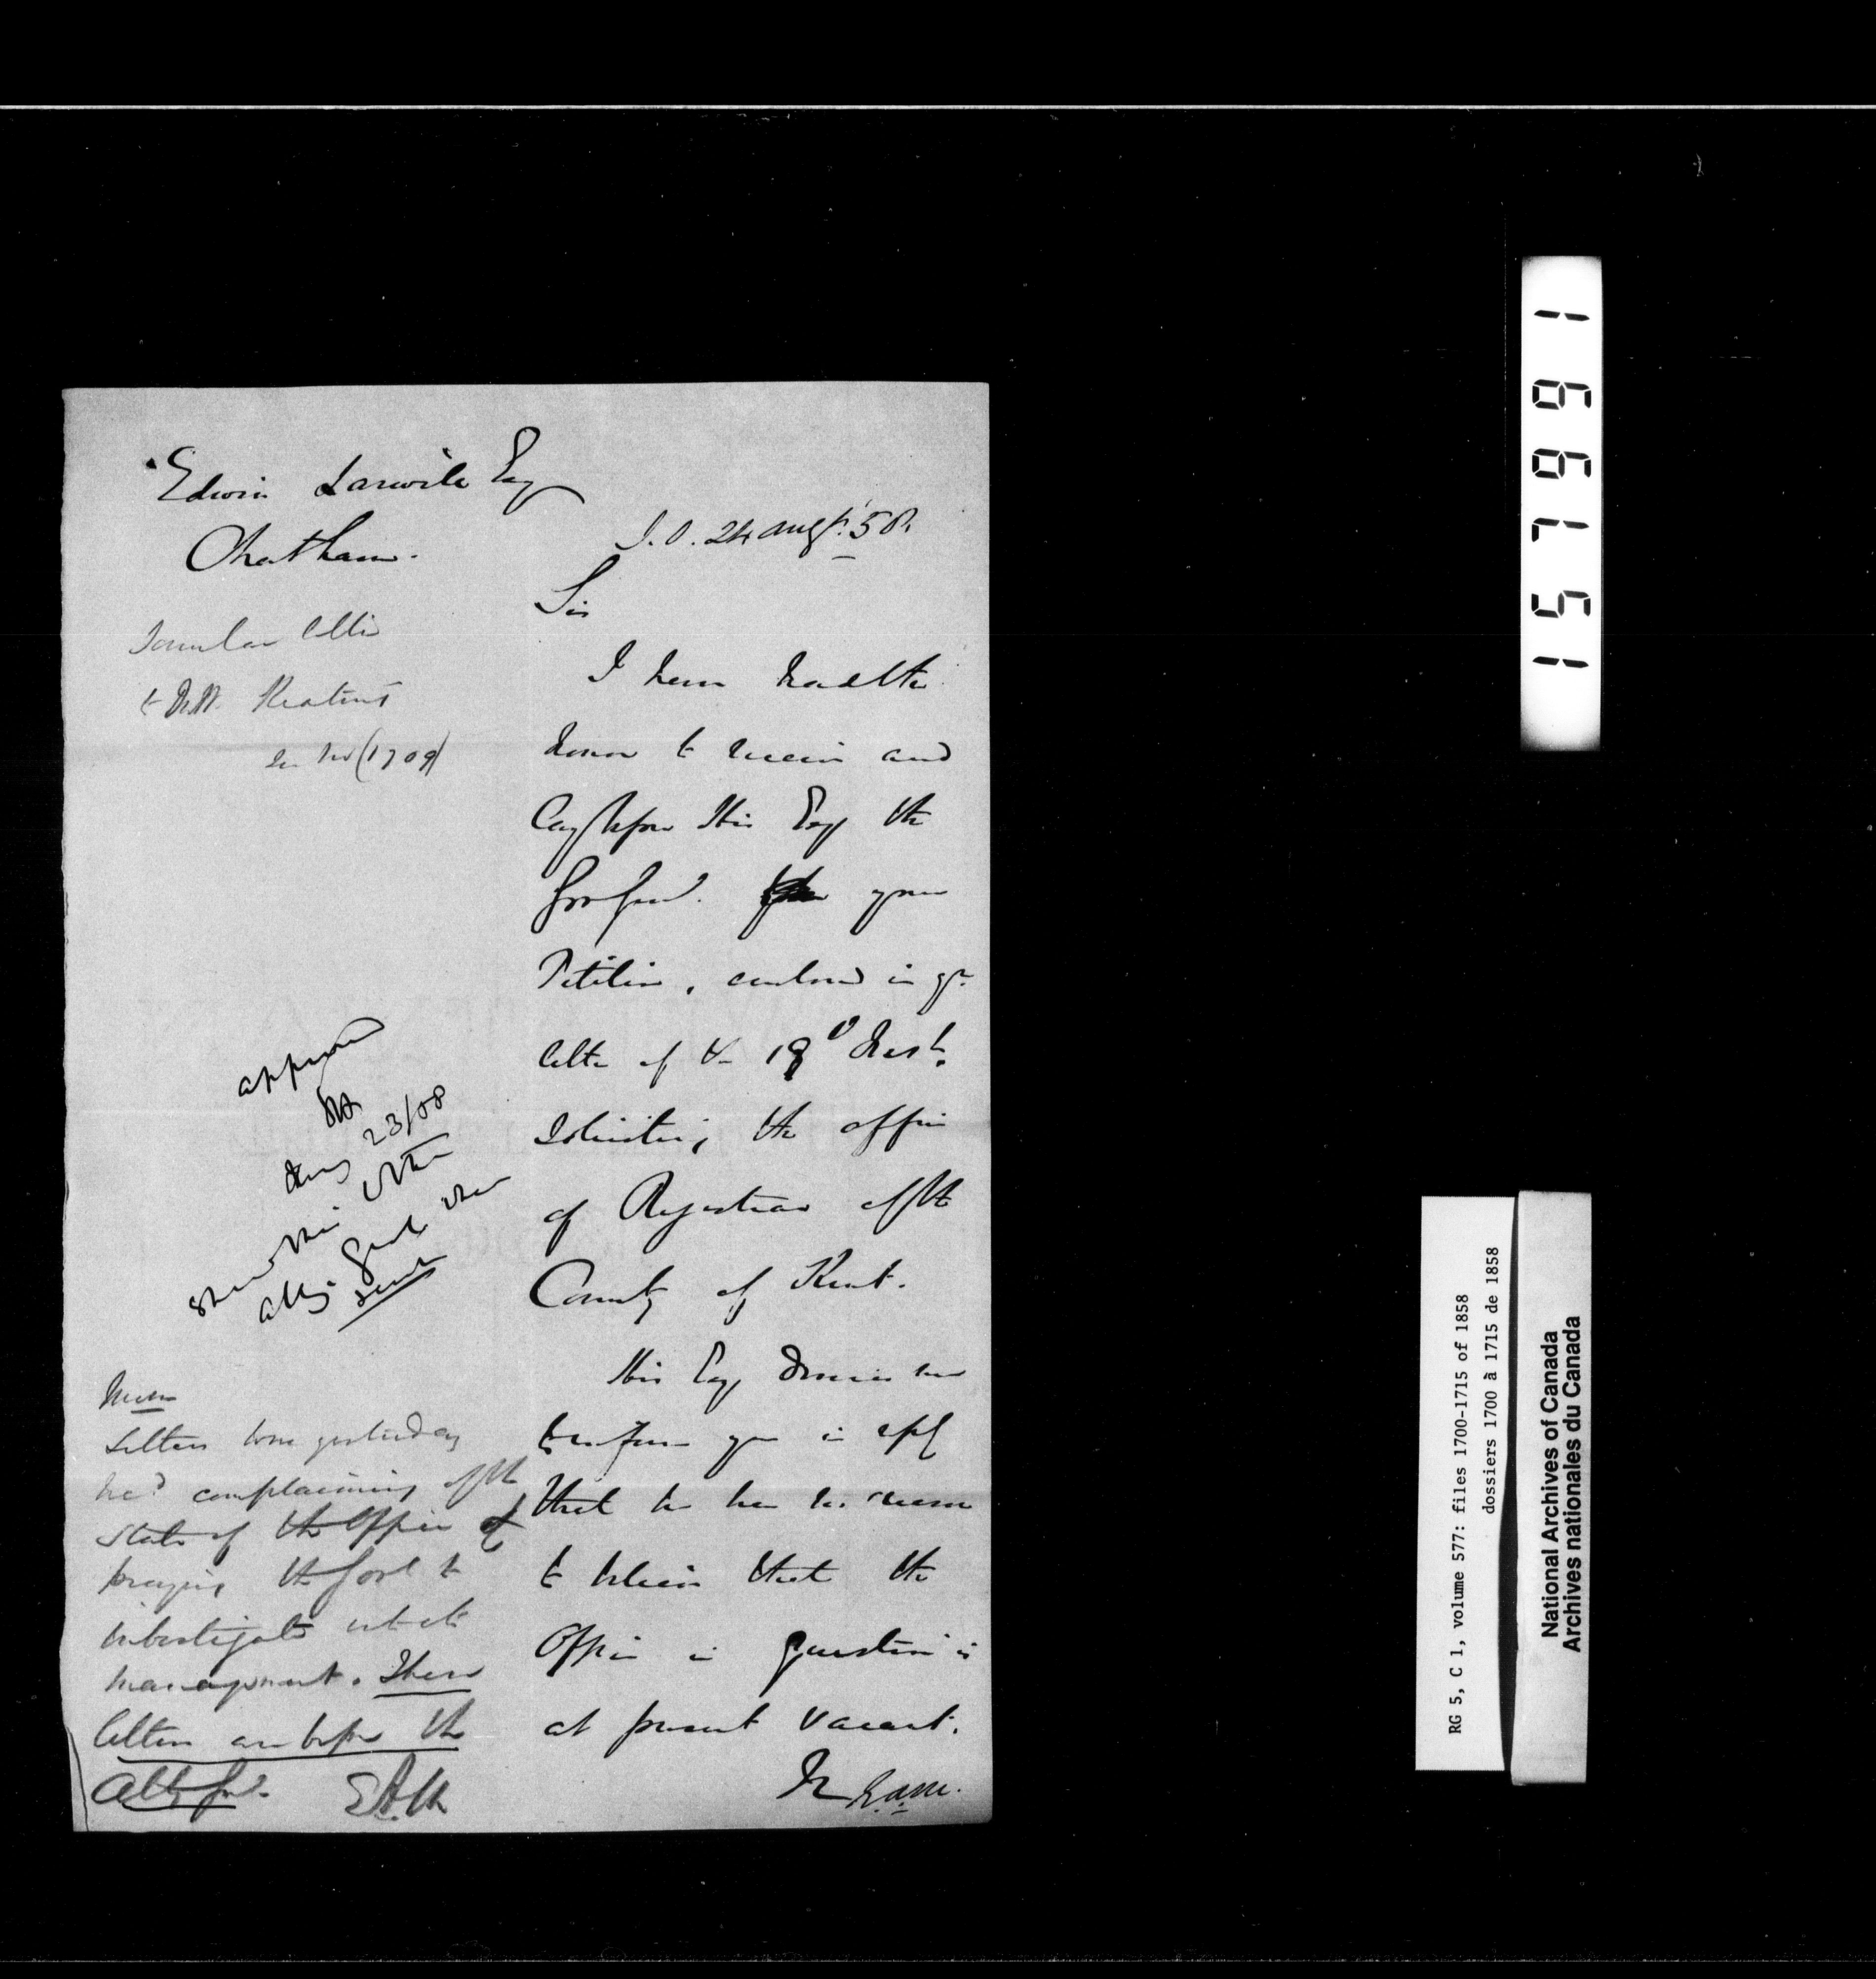 Edwin Larwill Esq
Chatham.
Similar letter
to Mr Keating
in No (1709)
S.O. 24 Augt. 58.
Sir
I have had the
honor to receive and
lay before His Exy the
Govr Genl. your
Petition, enclosed in yr
letter of the 19th Inst.
soliciting the office
of Registrar of the
County of Kent.
His Exy desires me
to inform you in reply
that he has no reason
to believe that the
Office in question is
at present vacant.
E.A.M.
approved
Aug 23/58
letter
Atty Genl
sent
Mem
Letters were yesterday
recd complaining of the
State of the Office &
praying the Govt to
investigate into its
management. These
letters are before the
Atty Genl. EAM
1 6 6 7 5 1
RG 5, C 1, volume 577: files 1700-1715 of 1858
dossiers 1700 à 1715 de 1858
National Archives of Canada
Archives nationales du Canada